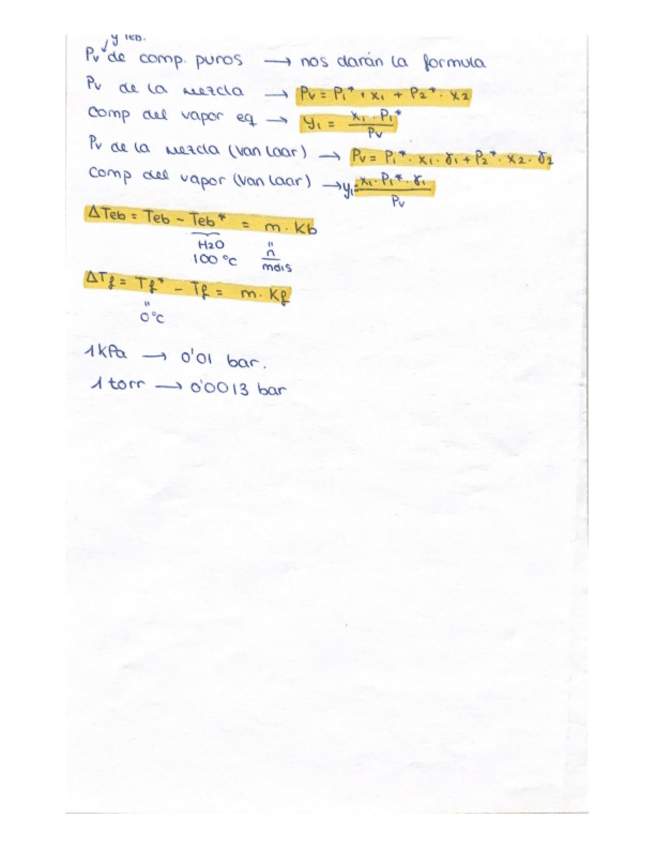 y Teb.
Pv de comp. puros → nos darán la formula
Pv de la mezcla → Pv = P1* · x1 + P2* · x2
Comp del vapor eq → y1 = x1 · P1* / Pv
Pv de la mezcla (Van Laar) → Pv = P1* · x1 · γ1 + P2* · x2 · γ2
Comp del vapor (Van Laar) → y1 = x1 · P1* · γ1 / Pv
ΔTeb = Teb - Teb* = m · Kb
H2O " n
100 °C mdis
ΔTf = Tf* - Tf = m · Kf
"
0°C
1 kPa → 0'01 bar.
1 torr → 0'0013 bar